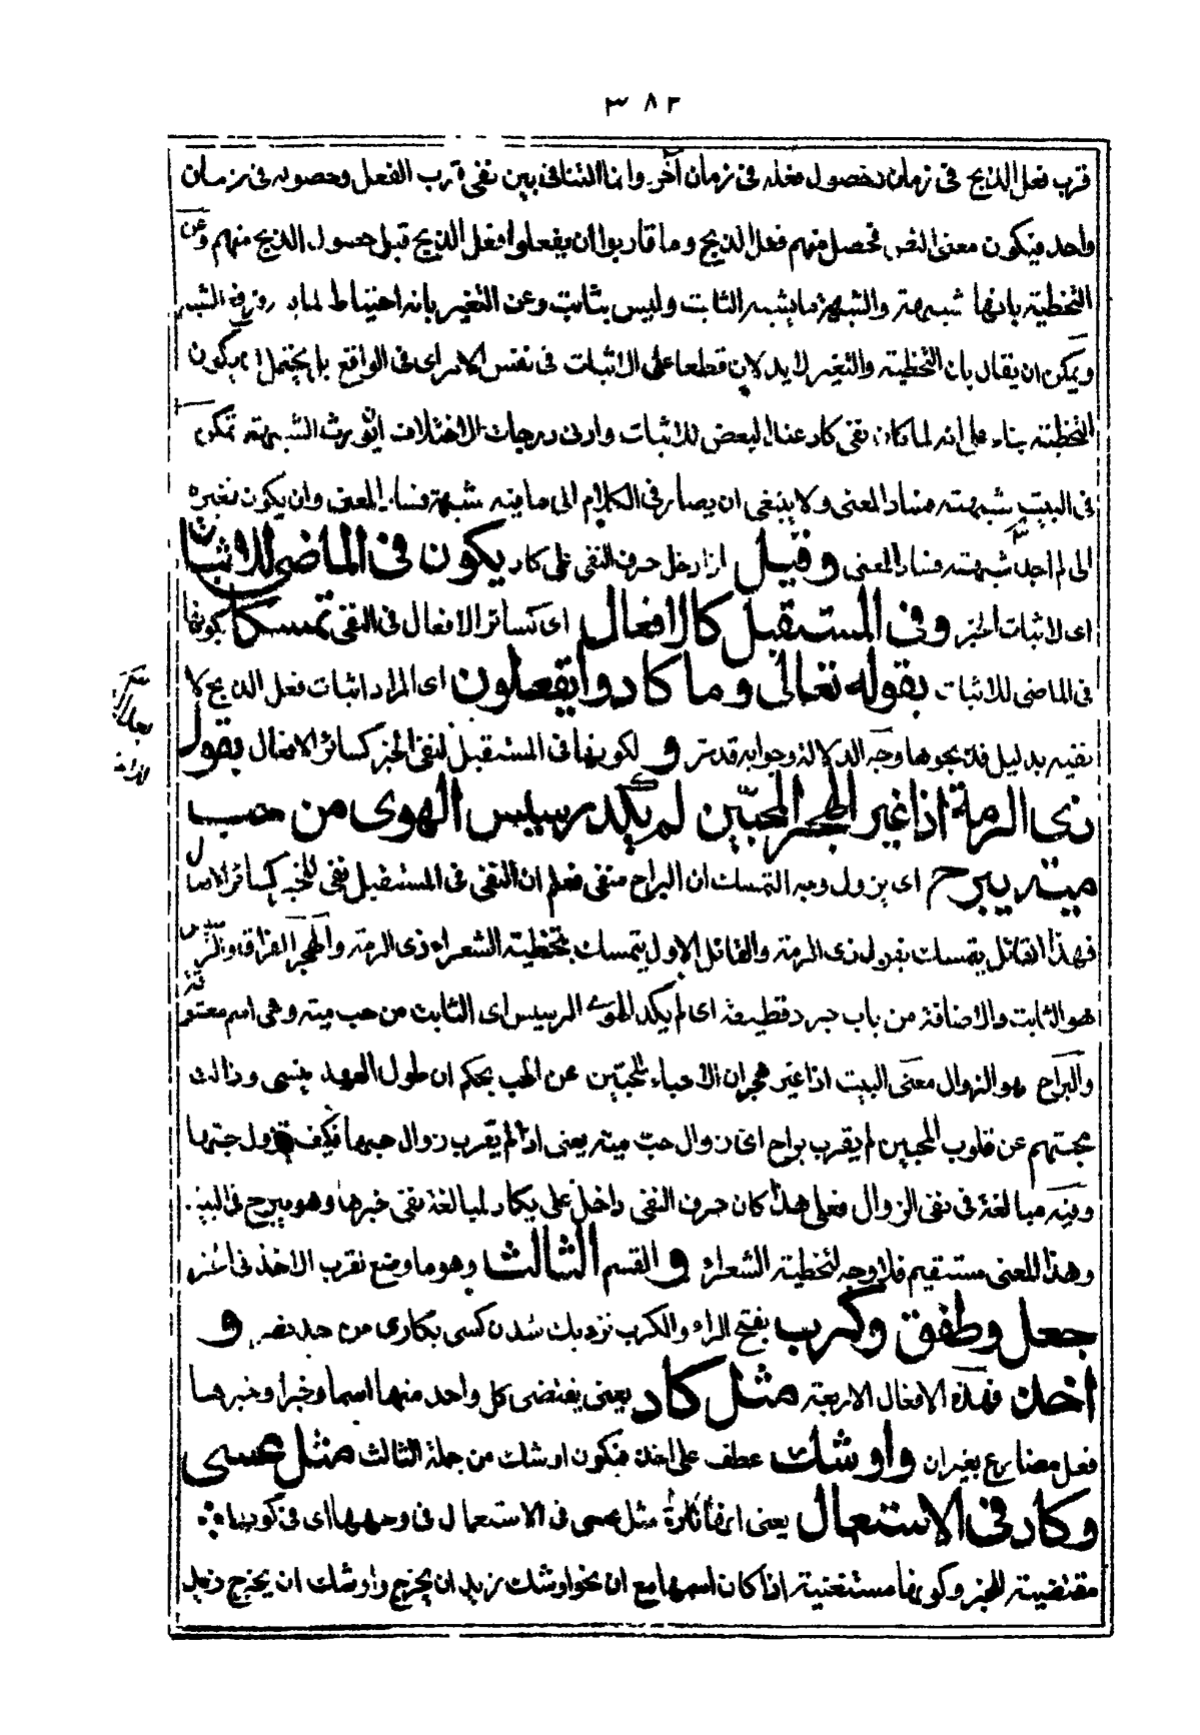 ٣٨٢
قرب فعل الذبح فى زمان وحصول فعله فى زمان آخر وانما التنافى بين نفى قرب الفعل وحصوله فى زمان
واحد فيكون معنى النص فحصل منهم فعل الذبح وما قاربوا ان يفعلوا فعل الذبح قبل حصول الذبح منهم وعن
التخطية بانها شبهة والشبهة ما يشبه الثابت وليس بثابت وعن التغير بانه احتياط
ويمكن ان يقال بان التخطية والتغير لا يدلان قطعا على الاثبات فى نفس الامر اى فى الواقع بل يحتمل ان يكون
التخطية بناء على انه لما كان نفى كاد عند البعض للاثبات وادنى درجات الاختلاف ان يورث الشبهة تمكن
فى البيت شبهة فساد المعنى ولا ينبغى ان يصار فى الكلام الى ما فيه شبهة فساد المعنى وان يكون تغيره
الى لم اجد شبهة فساد المعنى وقيل اذا دخل حرف النفى على كاد يكون فى الماضى للاثبات
اى لاثبات الخبر وفى المستقبل كالافعال اى كسائر الافعال فى النفى تمسكا بكونها
فى الماضى للاثبات بقوله تعالى وما كادوا يفعلون اى المراد اثبات فعل الذبح لا
نفيه بدليل فذبحوها وجه الدلالة وجوابه قد مر و لكونها فى المستقبل لنفى الخبر كسائر الافعال بقول
ذى الرمة اذا غير الهجر المحبين لم يكد رسيس الهوى من حب
مية يبرح اى يزول وجه التمسك ان البراح منفى فعلم ان النفى فى المستقبل نفى للخبر كسائر الافعال
فهذا القائل يتمسك بقول ذى الرمة والقائل الاول يتمسك بتخطية الشعراء ذى الرمة والهجر الفراق والرسيس
هو الثابت والاضافة من باب جرد قطيفة اى لم يكد الهوى الرسيس اى الثابت من حب مية وهى اسم معشوقته
والبراح هو الزوال معنى البيت اذا غير هجران الاحباء للمحبين عن الحب بحكم ان طول العهد ينسى وزالت
محبتهم عن قلوب المحبين لم يقرب براح اى زوال حب مية يعنى اذا لم يقرب زوال حبها فكيف تزول حبها
وفيه مبالغة فى نفى الزوال فعلى هذا كان حرف النفى داخل على يكاد لمبالغة نفى خبرها وهو يبرح فى البيت
وهذا المعنى مستقيم فلا وجه لتخطية الشعراء و القسم الثالث وهو ما وضع لقرب الاخذ فى الخبر
جعل وطفق وكرب بفتح الراء والكرب نزديك شدن كسى بكارى من حد نصر و
اخذ فهذه الافعال الاربعة مثل كاد يعنى يقتضى كل واحد منها اسما وخبرا وخبرها
فعل مضارع بغير ان واوشك عطف على اخذ فيكون اوشك من جملة الثالث مثل عسى
وكاد فى الاستعمال يعنى انها تارة مثل عسى فى الاستعمال فى وجهيها اى فى كونها
مقتضية للخبر وكونها مستغنية اذا كان اسمها مع ان نحو اوشك زيد ان يخرج واوشك ان يخرج زيد